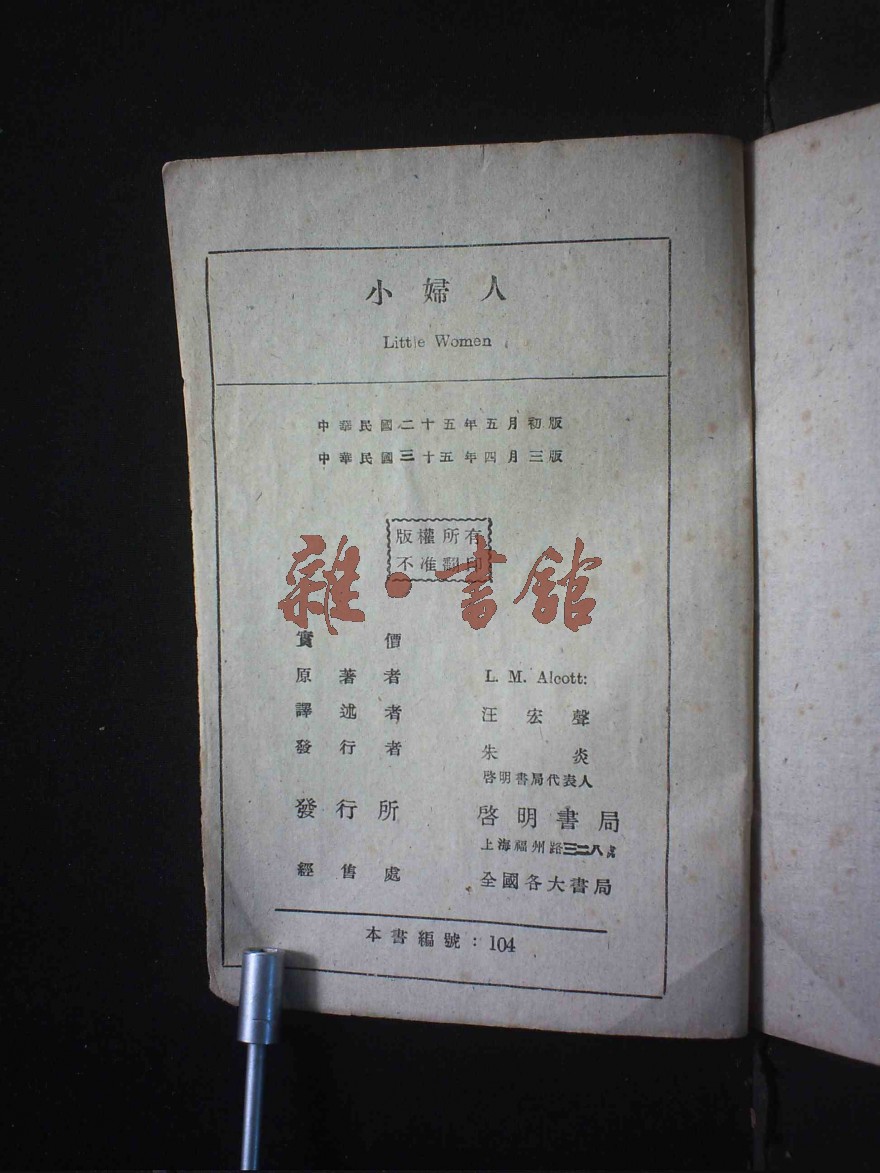 小婦人
Little Women
中華民國二十五年五月初版
中華民國三十五年四月三版
版權所有
不准翻印
雜·書館
實價
原著者 L. M. Alcott:
譯述者 汪宏聲
發行者 朱炎
啓明書局代表人
發行所 啓明書局
上海福州路三二八號
經售處 全國各大書局
本書編號：104